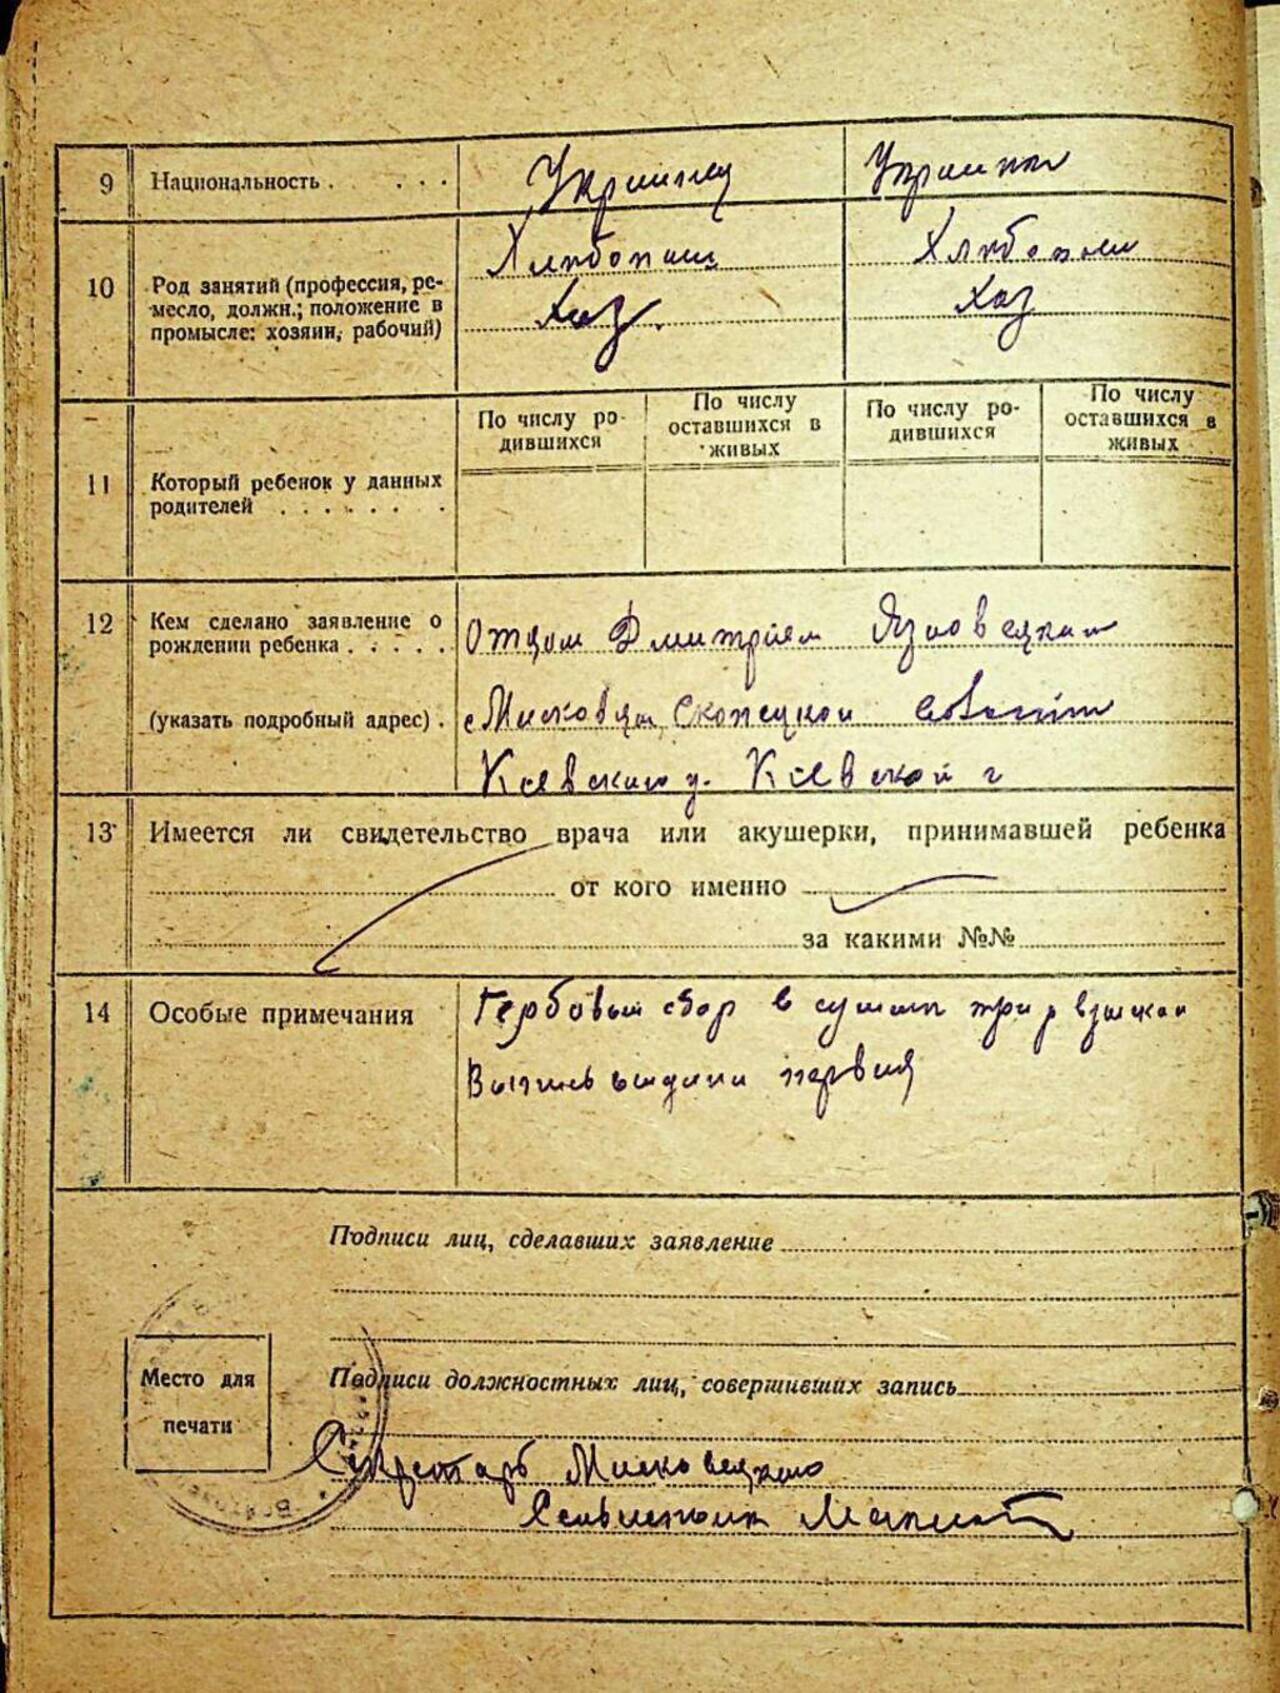 9 Национальность . . . . Украинец Украинка
10 Род занятий (профессия, ре-
месло, должн.; положение в
промысле: хозяин, рабочий)
Хлебопаш Хлебопаш
Хоз. Хоз
11 Который ребенок у данных
родителей . . . . . . .
По числу ро-
дившихся
По числу
оставшихся в
живых
По числу ро-
дившихся
По числу
оставшихся в
живых
12 Кем сделано заявление о
рождении ребенка . . . . .
(указать подробный адрес) .
Отцом Дмитрием
с
Киевского у. Киевской г
13 Имеется ли свидетельство врача или акушерки, принимавшей ребенка
от кого именно
за какими №№
14 Особые примечания
Гербовый сбор в сумме три р
Выпись выдана первая
Подписи лиц, сделавших заявление
Место для
печати
Подписи должностных лиц, совершивших запись
Секретарь